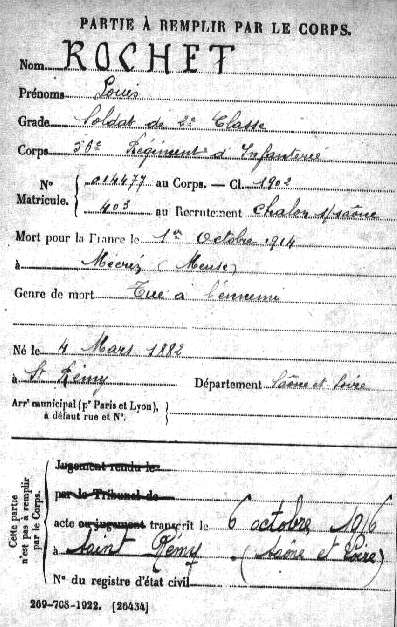 PARTIE À REMPLIR PAR LE CORPS.
Nom ROCHET
Prénoms Louis
Grade Soldat de 2e Classe
Corps 56e Régiment d'Infanterie
N° Matricule. { 014477 au Corps. — Cl. 1902
403 au Recrutement Chalon s/saône
Mort pour la France le 1er Octobre 1914
à (Meuse)
Genre de mort Tué à l'ennemi
Né le 4 Mars 1882
à St Rémy Département Saône et Loire
Arrt municipal (pr Paris et Lyon), à défaut rue et N°. }
Cette partie n'est pas à remplir par le Corps.
Jugement rendu le
par le Tribunal de
acte ou jugement transcrit le 6 octobre 1916
à Saint Rémy (Saône et Loire)
N° du registre d'état civil
269-708-1922. [26434]